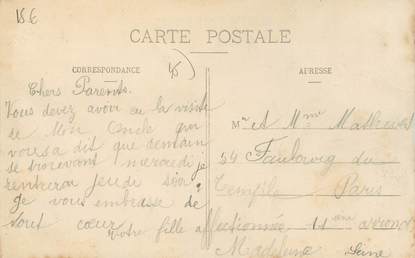 15€
CARTE POSTALE
CORRESPONDANCE
ADRESSE
Chers Parents.
Vous devez avoir eu la visite
de Mon Oncle qui
vous a dit que demain
se trouvant mercredi je
rentrerai jeudi soir
Je vous embrasse de
tout cœur
votre fille affectionnée
Madeleine
Mr et Mme
54 Faubourg du
Temple Paris
11eme arrond
Seine